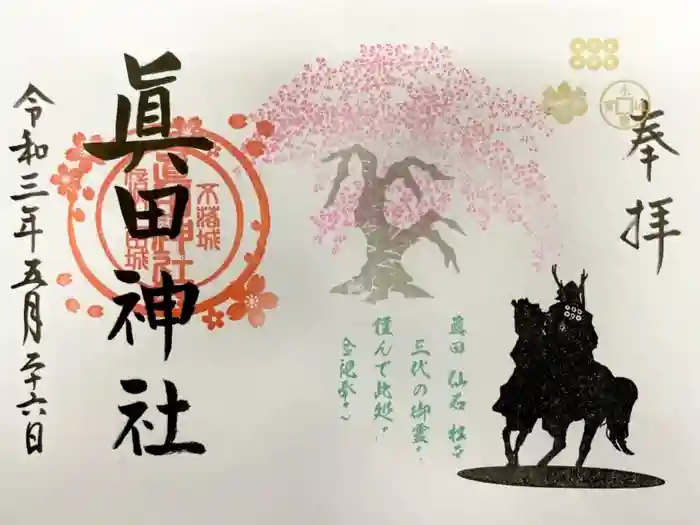 奉拝
真田 仙石 松平
三代の御霊を
謹んで此処に
合祀奉る
眞田神社
不落城
眞田神社
令和三年五月二十六日